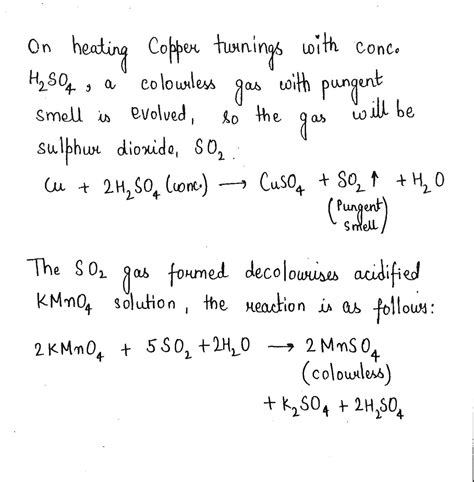 On heating Copper turnings with conc.
H₂SO₄, a colourless gas with pungent
smell is evolved, so the gas will be
sulphur dioxide, SO₂.
Cu + 2H₂SO₄ (conc.) ⟶ CuSO₄ + SO₂↑ + H₂O
(Pungent
smell)
The SO₂ gas formed decolourises acidified
KMnO₄ solution, the reaction is as follows:
2KMnO₄ + 5SO₂ + 2H₂O ⟶ 2MnSO₄
(colourless)
+ K₂SO₄ + 2H₂SO₄